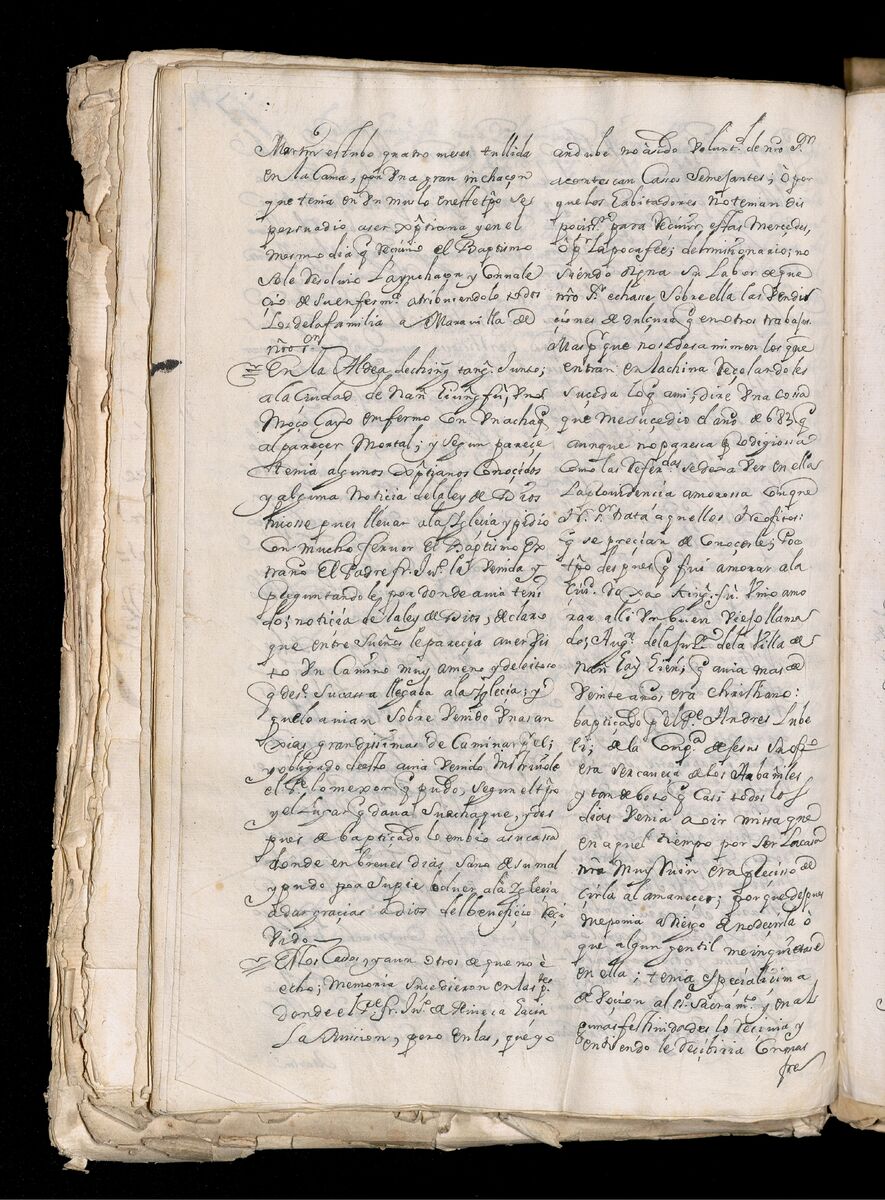 Martin estubo quatro meses tullida
en la Cama, por Vna gran inchaçon
que tenia en Vn muslo en este tpõ se
persuadio a ser xp̃tiana y en el
mesmo dia q̃ reciuio el Baptismo
se le resoluio La ynchaçn y conuale
cio de su enfermd. atribuiendolo todos
Los de la familia a Marauilla de
nr̃o sor
En la Aldea de ching tang. Junto;
a la Ciudad de Nañ Kiung fũ, Vn
Moço Cayo enfermo con Vn achaq̃
al parecer Mortal; y segun parece
tenia algunos xp̃tianos conocidos
y alguna noticia de la ley de Dios
hiçose pues lleuar a la Iglesia y pidio
con mucho feruor el Baptismo ex
traño El Padre fr. Jun. la Venida y
preguntandole, por donde auia teni
do; noticia de la ley de Dios, declaro
que entre sueños le parecia auer Vis
to Vn Camino muy ameno y deleitoso
q̃ desde su cassa llegaba a la Iglesia; y
que lo auian sobre Venido Vnas an
sias grandissimas de Caminar p̃ el;
y obligado de esto auia Venido instruiole
el Pe. lo mexor q̃ pudo, segun el tpõ
y el Lugar q̃ daua su achaque, y des
pues de baptiçado le embio a su cassa
donde en breues dias sano de su mal
y pudo por su pie boluer a la Iglesia
a dar gracias a Dios del beneficio reci
Vido
Estos Casos y aun otros de que no è
echo; Memoria sucedieron en las ptes.
donde el Pe. fr. Jun. de Hacia
La Mision, pero en las, que yo
andube no à sido Voluntd. de nr̃o Sor
acontescan Cassos Semejantes; ò por
que los habitadores no tenian dis
posisn. para reciuir, estas Mercedes,
ò p̃ la poca feè; del misionario; no
siendo digna su Labor de que
nr̃o Sr. echasse sobre ella las Vendi
ciones de dulçura q̃ en otros trabajos.
Mas p̃ que no se desanimen los que
entran en la china reçelandoles
suceda lo q̃ a mi; dire Vna cossa
que me sucedio el año de 683 q̃
aunque no paresca prodegiossa
como las referidas se dexa Ver en ella
La prouidencia amorossa con que
Nr. Sor trata aquellos Neofitos;
q̃ se precian de conoçerle; Poco
tpõ despues q̃ fui a morar a la
Ciud. Vino a mo
rar alli Vn buen Viejo llama
do; Augn. de la Villa de
q̃ auia mas de
Veinte años, era christiano:
baptiçado p̃ el Pe. Andres Lube
li; de la Compa. de Jesus su offo.
era ser cauesa de los Albañiles
y tan deboto q̃ casi todos los
dias Venia a oir missa que
en aquel tiempo por ser La casa
nr̃a muy ruin era preciso de
cirla al amanecer; porque despues
me ponia a riesgo de no decirla ò
que algun gentil me inquietase
en ella; tenia especialisima
deVoçion al SSo. Sacramto. y en al
gunas festiuidades lo reciuia y
pudiendo le reciuiria con mas
fre